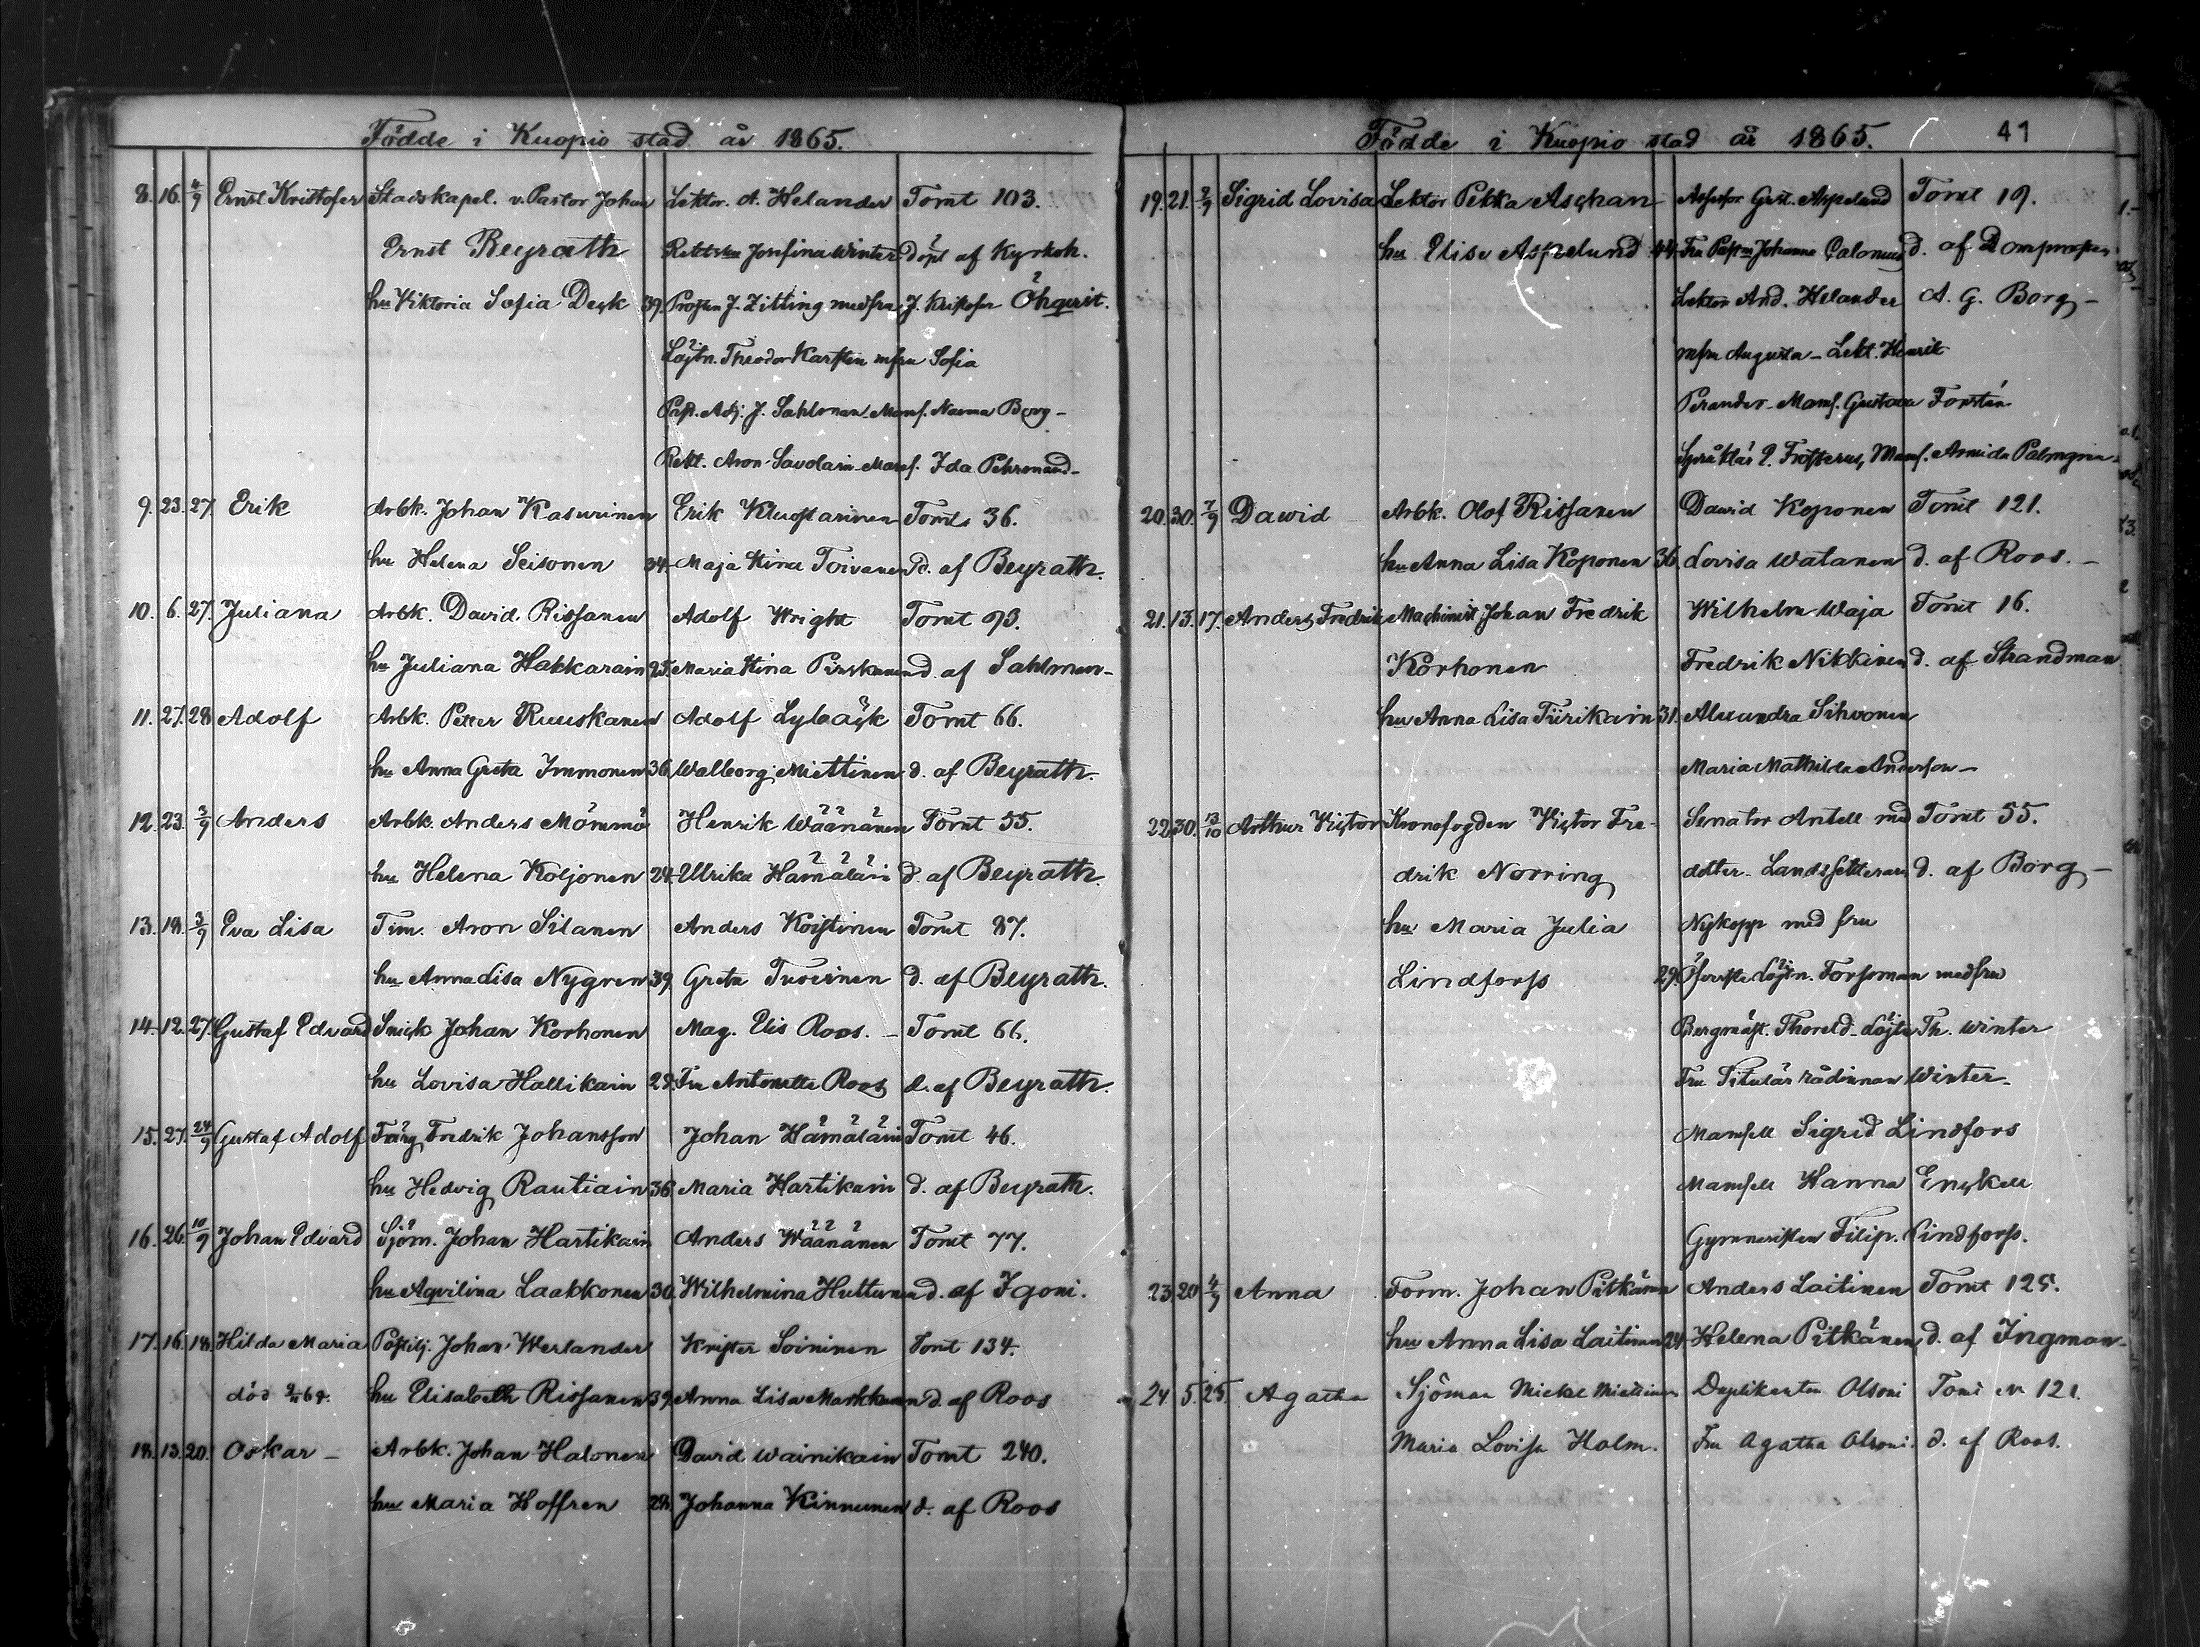 Födde i Kuopio stad år 1865.
8. 16. 4/9 Ernst Kristofer Stadskapel. v. Pastor Johan Lektor. A. Helander Tomt 103.
Ernst Beyrath Josefina Winter döpt af Kyrkoh.
hu Viktoria Sofia Deçk 39. Prosten J. Zitting med fru J. Kristofer Öhqvist.
Löjtn. Theodor Karsten m fru Sofia
Past. Adj. J. Sahlman Mams. Nanna Borg –
Rekt. Aron Savolain Mams. Ida
9. 23. 27. Erik Arbk. Johan Kasurinen Erik Tomts 36.
hu Helena Seisonen 34. Maja Stina Toivanen d. af Beyrath.
10. 6. 27. Juliana Arbk. David Rissanen Adolf Wright Tomt 93.
hu Juliana Hakkarain 25. Maria Stina Pirskanen d. af Sahlman –
11. 27. 28 Adolf Arbk. Petter Ruuskanen Adolf Lybäçk Tomt 66.
hu Anna Greta Immonen 36. Walborg Miettinen d. af Beyrath.
12. 23. 3/9 Anders Arbk. Anders Mömmö Henrik Wäänänen Tomt 55.
hu Helena Koljonen 24. Ulrika Hämäläin d. af Beyrath.
13. 18. 3/9 Eva Lisa Tim. Aron Silanen Anders Koistinen Tomt 87.
hu Anna Lisa Nygren 39. Greta Tuovinen d. af Beyrath.
14. 12. 27. Gustaf Edvard Sniçk Johan Korhonen Mag. Elis Roos. – Tomt 66.
hu Lovisa Hallikain 28. Fru Antonette Roos d. af Beyrath.
15. 27. 24/9 Gustaf Adolf Färg. Fredrik Johansson Johan Hämäläin Tomt 46.
hu Hedvig Rautiain 36. Maria Hartikain d. af Beyrath.
16. 26. 10/9 Johan Edvard Sjöm. Johan Hartikain Anders Wäänänen Tomt 77.
hu Aqvilina Laakkonen 30. Wilhelmina Huttunen d. af Igoni.
17. 16. 18. Hilda Maria Postilj. Johan Werlander Krister Soininen Tomt 134.
död hu Elisabeth Rissanen 39. Anna Lisa Markkanen d. af Roos
18. 13. 20. Oskar – Arbk. Johan Halonen David Wainikain Tomt 240.
hu Maria Hoffren 28. Johanna Kinnunen d. af Roos
Födde i Kuopio stad år 1865. 41
19. 21. 2/9 Sigrid Lovisa Lektor Pekka Asçhan Assessor Gust. Aspelund Tomt 19.
hu Elise Aspelund 44. Fru Johanna Calonius d. af Domprosten
Lektor And. Helander A. G. Borg –
m fru Augusta – Lekt. Henrik
Perander – Mams. Gustava Forstén
Språklär E. Frosterus, Mams. Armida Palmgren.
20. 30. 7/9 Dawid Arbk. Olof Rissanen Dawid Koponen Tomt 121.
hu Anna Lisa Koponen 36. Lovisa Watanen d. af Roos. –
21. 13. 17. Anders Fredrik Maçhinist Johan Fredrik Wilhelm Waja Tomt 16.
Korhonen Fredrik Nikkinen d. af Strandman
hu Anna Lisa Tiirikain 31. Alexandra Sihvonen
Maria Mathilda Anderson –
22. 30. 12/10 Arthur Viçtor Kronofogden Viçtor Fre- Senator Antell med Tomt 55.
drik Norring dotter – Landssekterare d. af Borg –
hu Maria Julia Nykopp med fru
Lindforss 29. Öfverste Löjtn. Forsman med fru
Bergmäst. Thoreld – Löjtn Th. Winter
Fru Titulär rådinnan Winter –
Mamsell Sigrid Lindfors
Mamsell Hanna Ençkell
Gymnasisten Filip. Lindforss.
23. 20. 4/9 Anna Form. Johan Pitkänen Anders Laitinen Tomt 125.
hu Anna Lisa Laitinen 24. Helena Pitkänen d. af Ingman –
24. 5. 25. Agatha Sjöman Mickel Miettinen Duplikanten Olsoni Tomt 121
Maria Lovisa Holm. Fru Agatha Olsoni. d. af Roos.